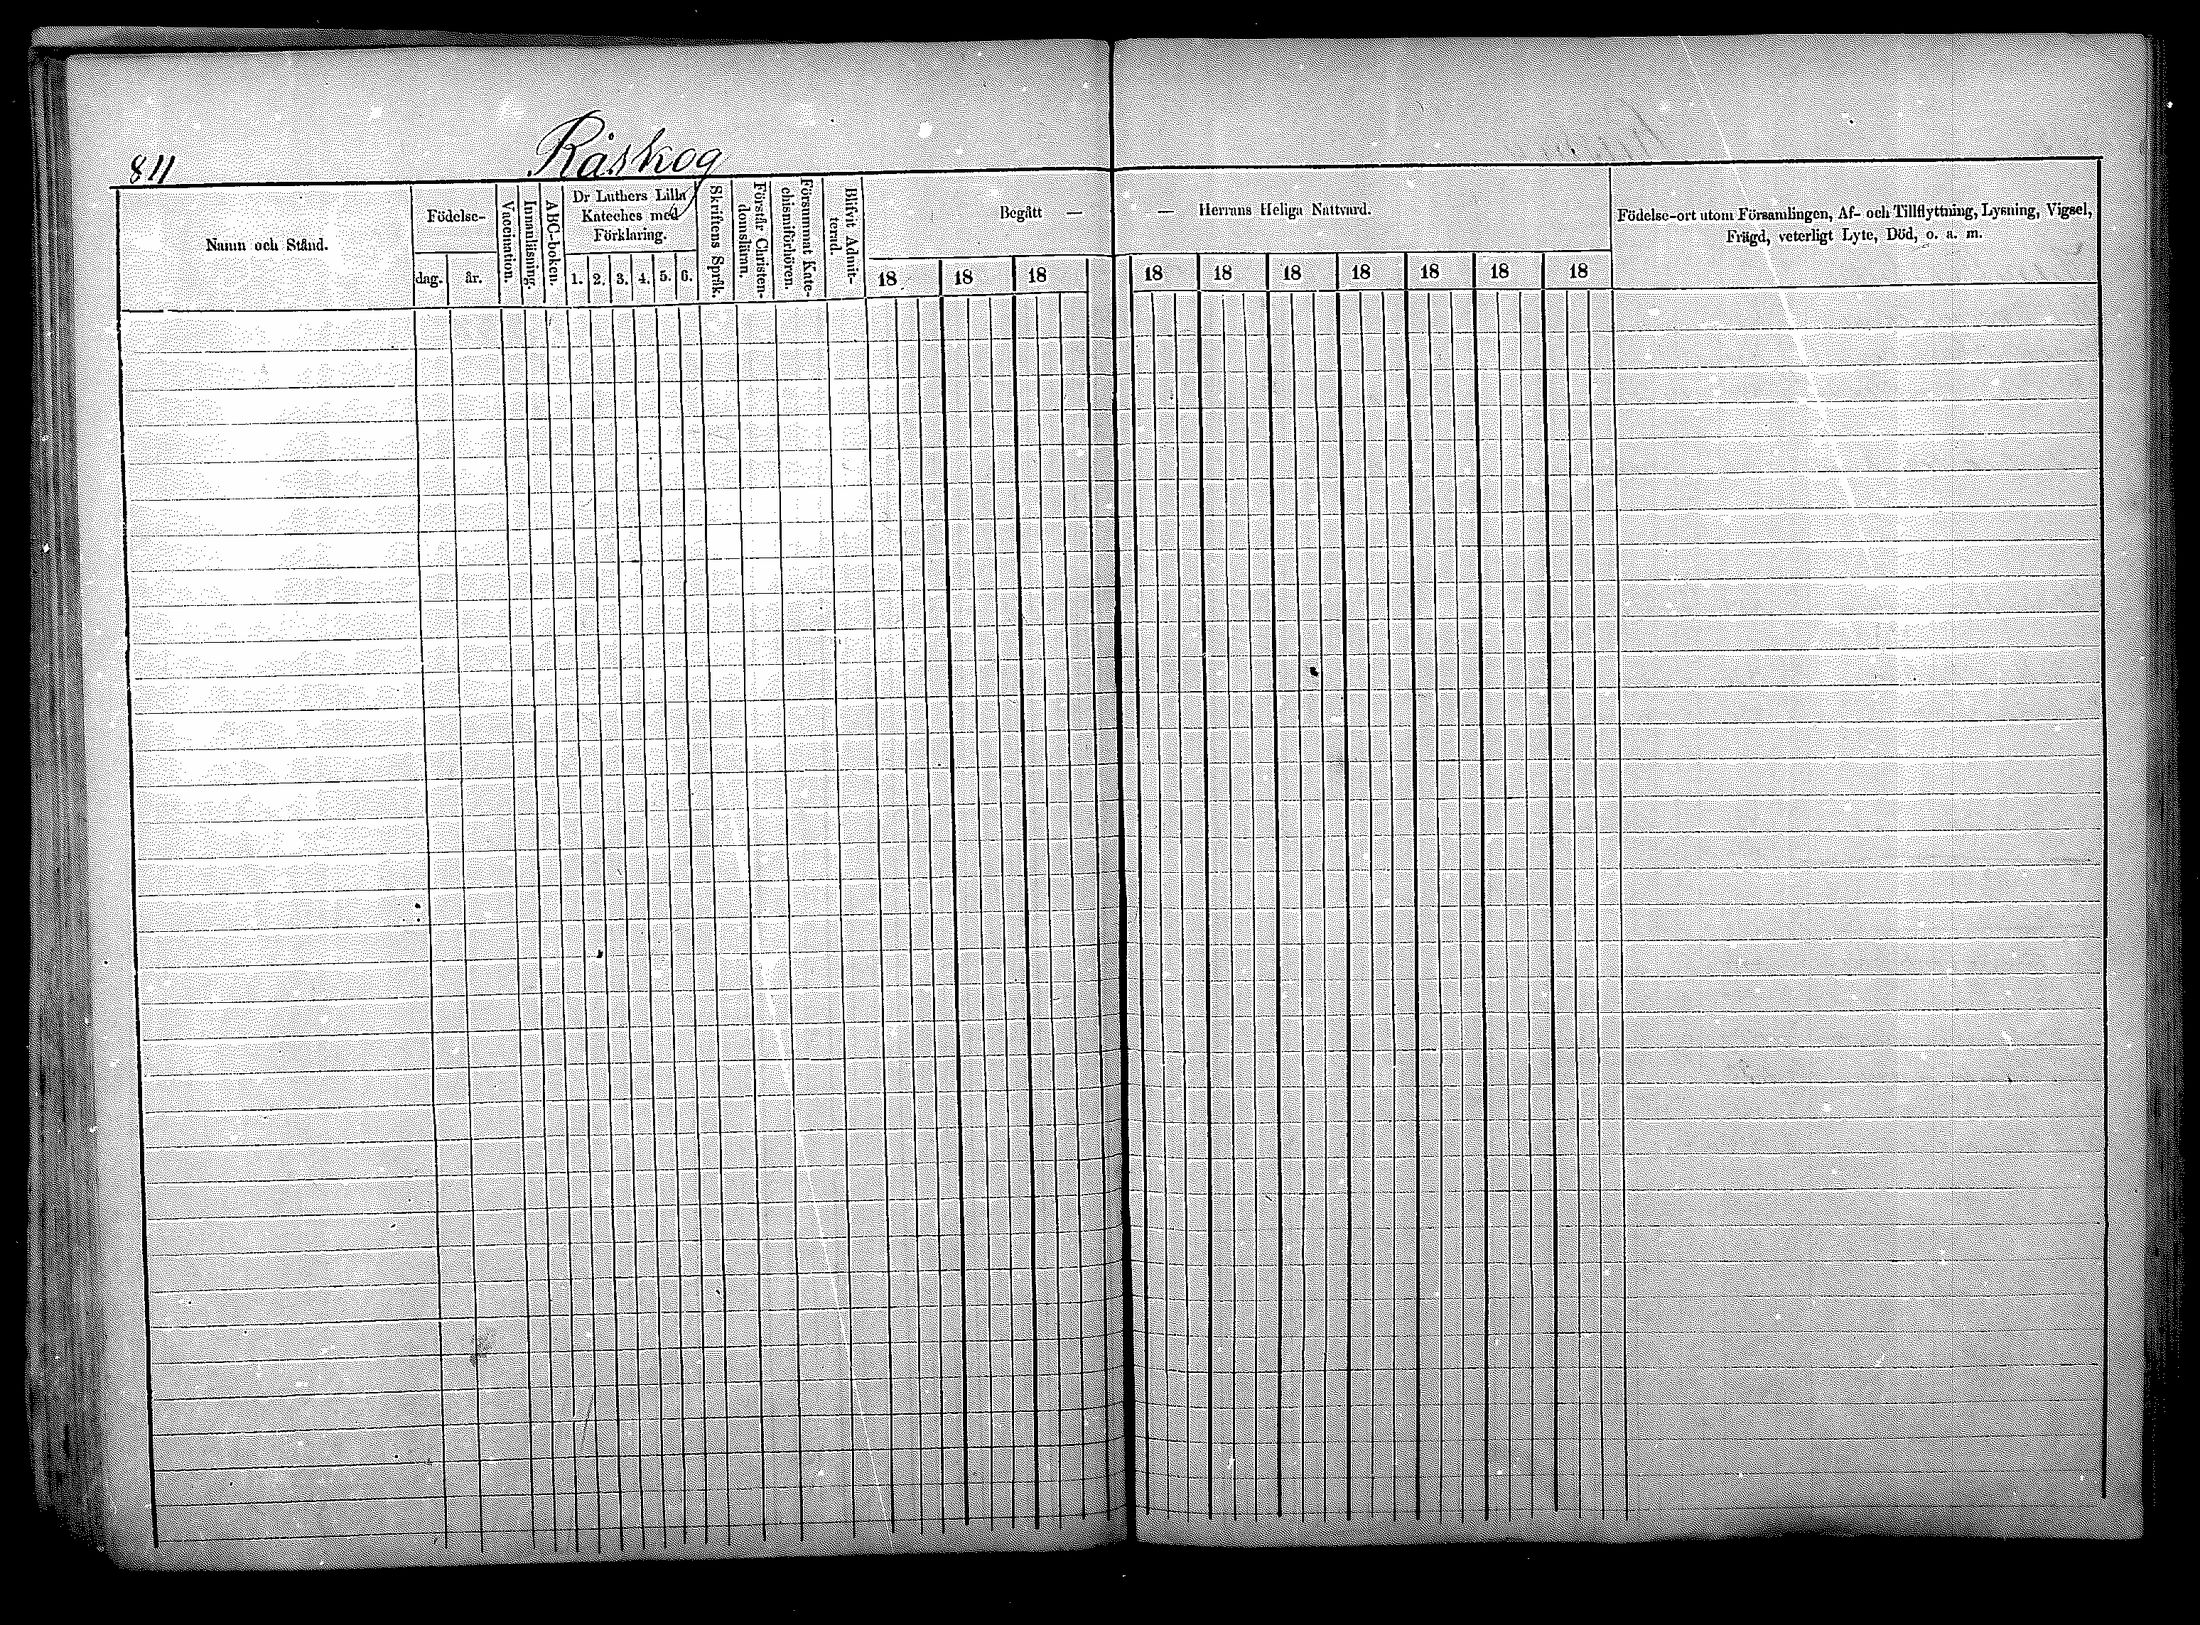 811
Råskog
Namn och Stånd.
Födelse-
dag.
år.
Vaccination.
Innanläsning.
ABC-boken.
Dr Luthers Lilla
Kateches med
Förklaring.
1. 2. 3. 4. 5. 6.
Skriftens Språk.
Förstår Christen-
domslärn.
Försummat Kate-
chismiförhören.
Blifvit Admit-
terad.
Begått —
18 18 18
— Herrans Heliga Nattvard.
18 18 18 18 18 18 18
Födelse-ort utom Församlingen, Af- och Tillflyttning, Lysning, Vigsel,
Frägd, veterligt Lyte, Död, o. a. m.